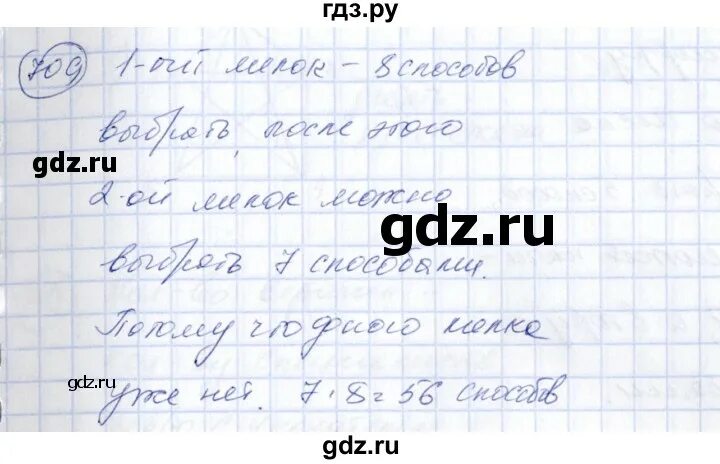 гдз.ру
709 1-ый мелок – 8 способов
выбрать, после этого
gdz.ru
gdz.ru
2-ой мелок можно
gdz.ru
выбрать 7 способами.
Потому что одного мелка
gdz.ru
gdz.ru
уже нет. 7 · 8 = 56 способов
gdz.ru